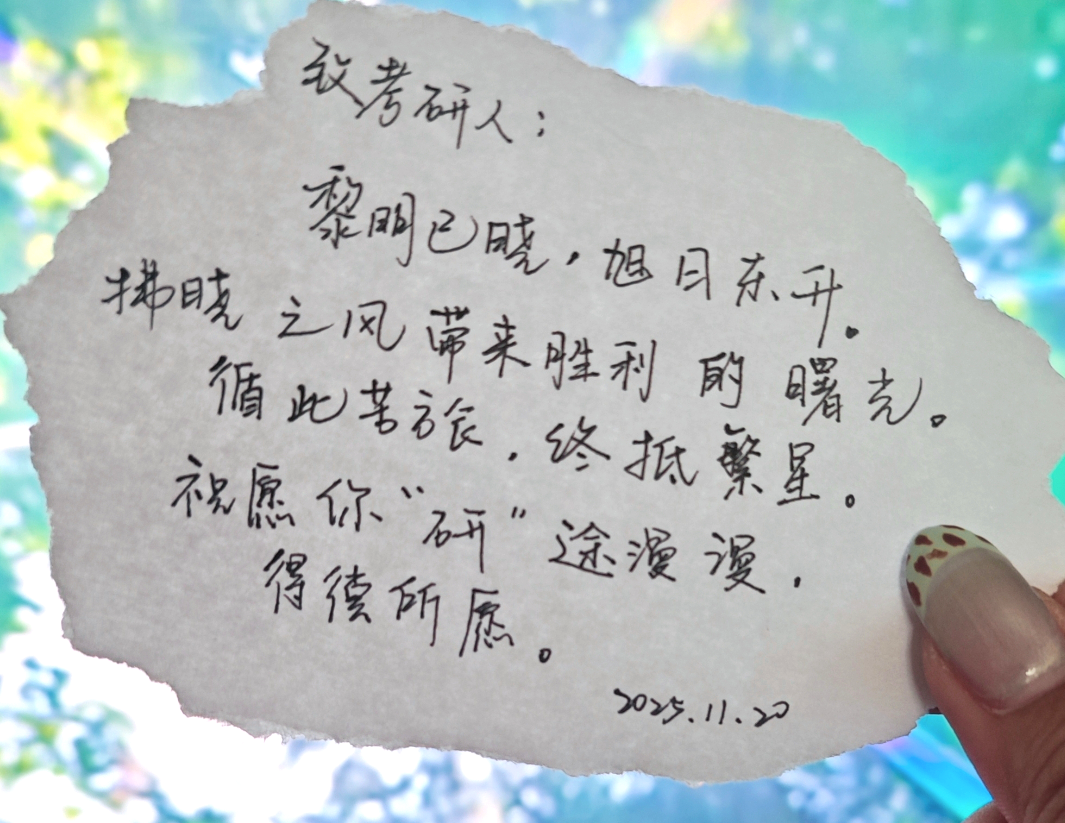 致考研人：
黎明已晓，旭日东升。
拂晓之风带来胜利的曙光。
循此苦旅，终抵繁星。
祝愿你“研”途漫漫，
得德所愿。
2025.11.20